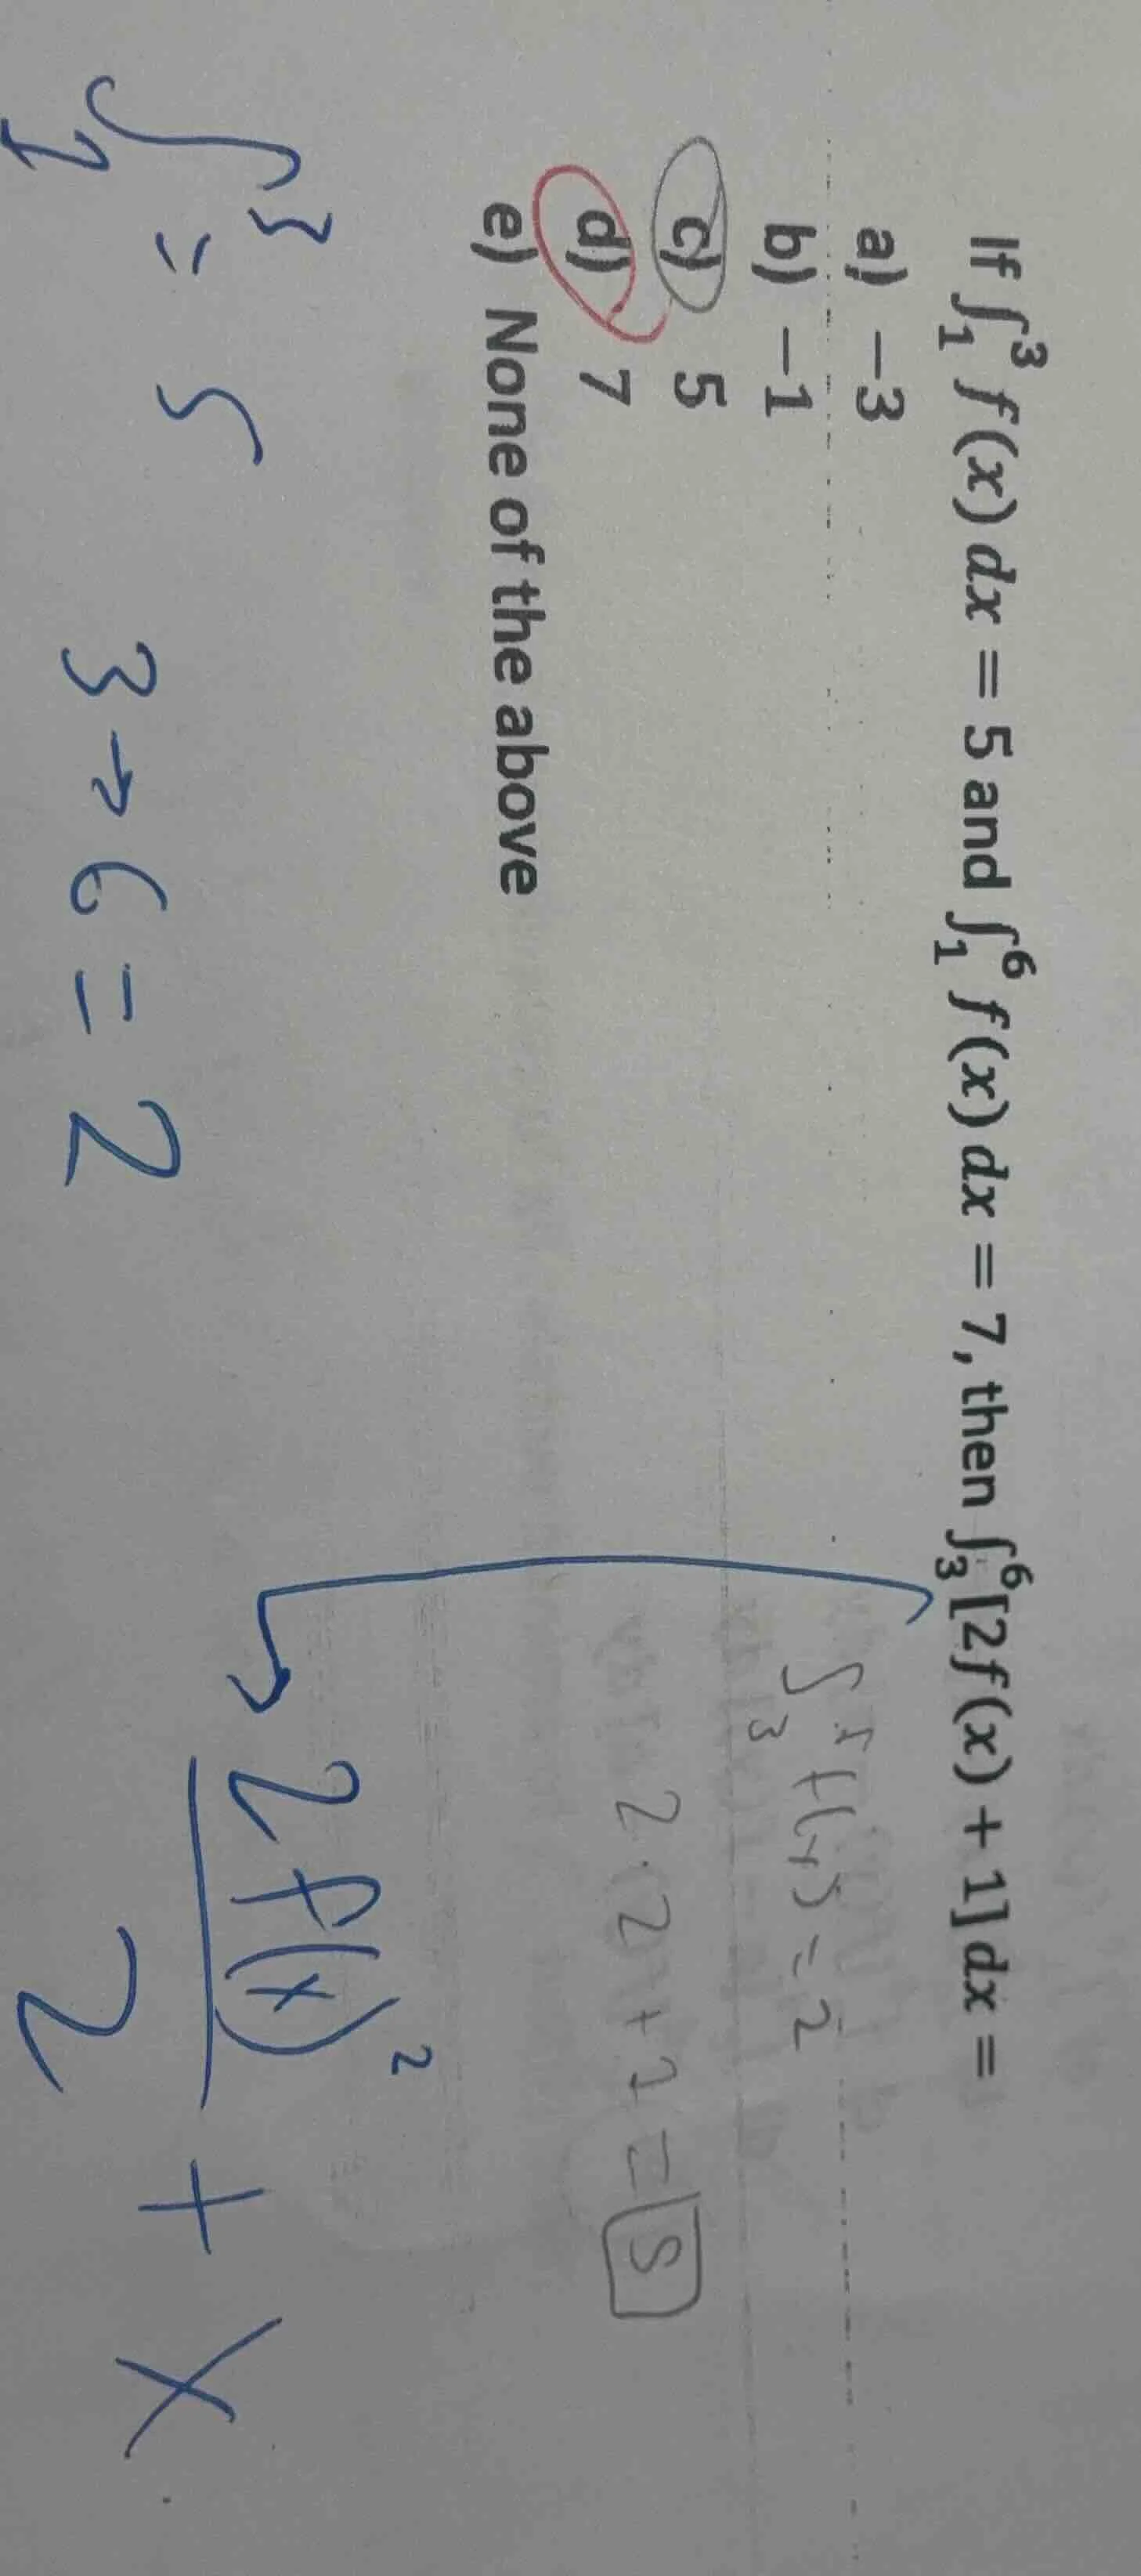 If ∫₁³ f(x) dx = 5 and ∫₁⁶ f(x) dx = 7, then ∫₃⁶[2f(x) + 1] dx =
a) −3
b) −1
c) 5
d) 7
e) None of the above
f(x) = 2
2·(2) + 1 = 5
2 f(x)² / 2 + x
∫₁³ = 5
3 → 6 = 2